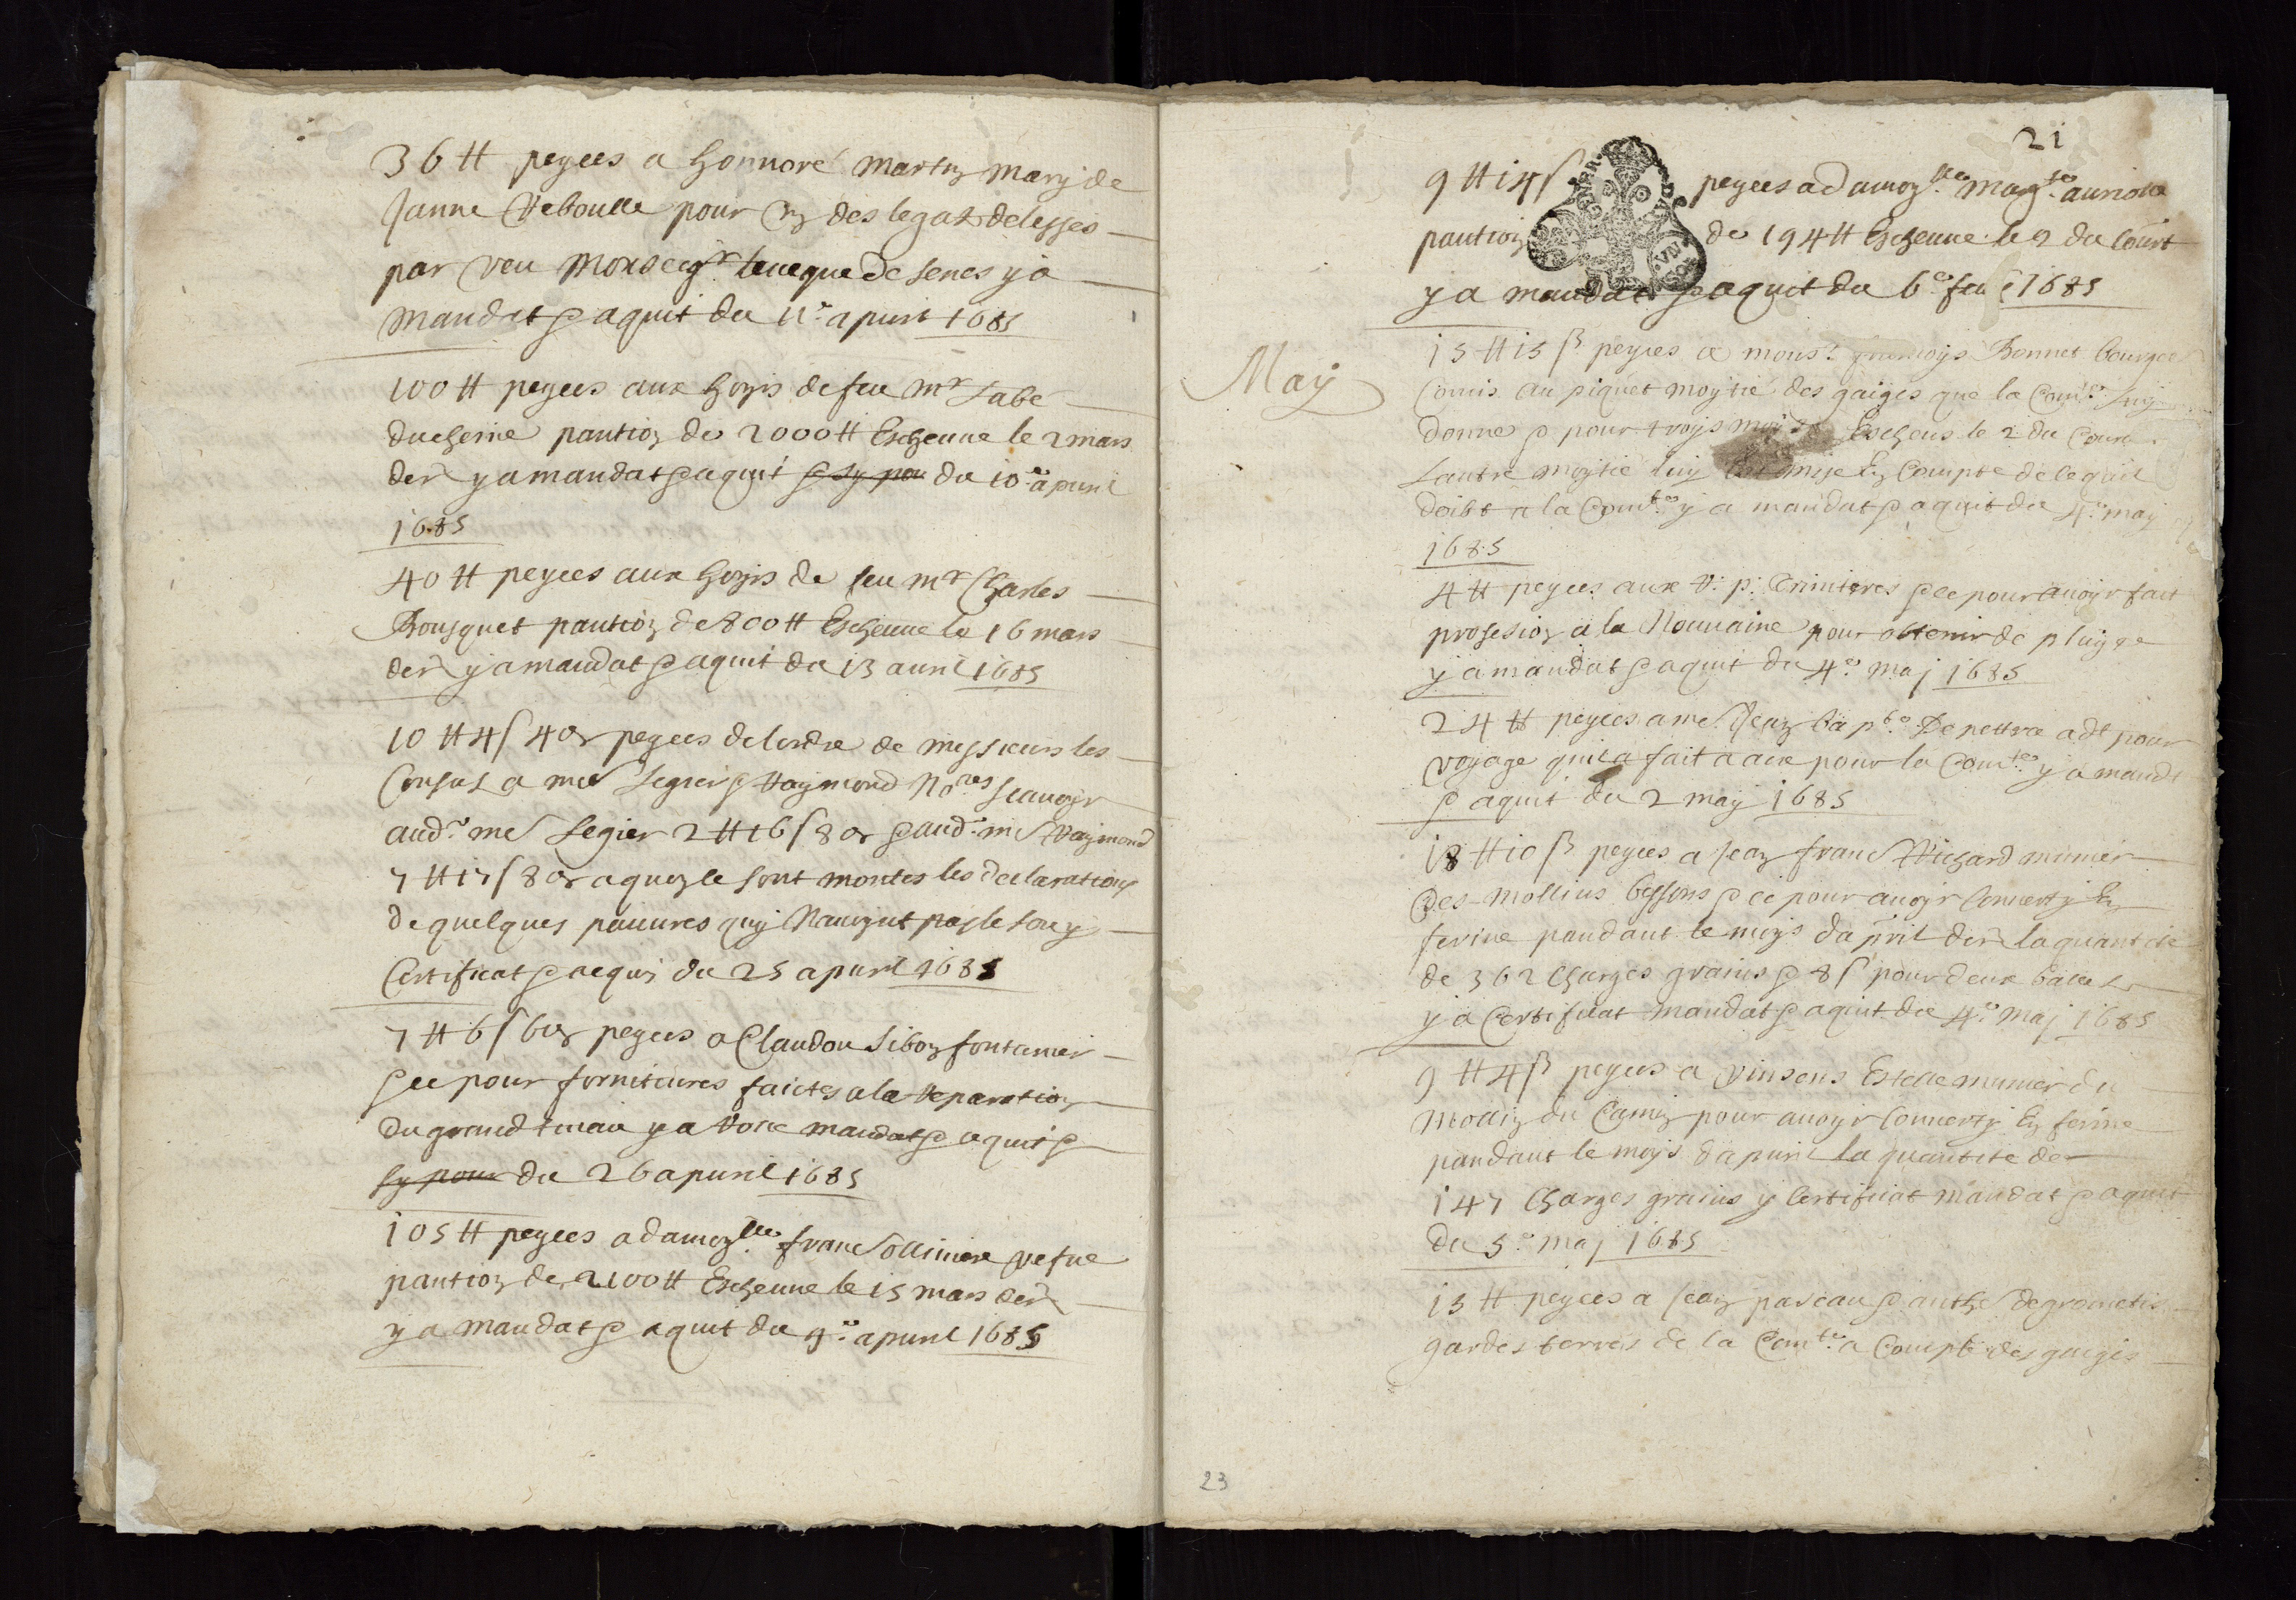 36 tt peyees a honnore martin mary de
Janne Reboulle pour un des legat delesses
par veu Monseigr. leveque de senes y a
Mandat & aquit du 11e apuril 1685
100 tt peyees aux hoyrs de feu mr Labe
ducherne pantion de 2000 tt Escheuue le 2 mars
der y a mandat & aquit & sy pou du 10e apuril
1685
40 tt peyees aux hoyrs de feu mr Charles
Bousquet pantion de 800 tt Escheuue le 16 mars
der y a mandat & aquit du 13 auril 1685
10 tt 4 s 4 d peyees de lordre de messieurs les
Consuls a mes Segier & Raymond Nores scauoyr
aud. me Segier 2 tt 16 s 8 d & aud. me Raymond
7 tt 17 s 8 d a quoy se sont montes les declarations
de quelques pauures quy Nauoynt pas le sou y
Certificat & acquis du 25 apuril 1685
7 tt 6 s 6 d peyees a Claudou Sibon fontanier
& ce pour fornitures faictes a la Reparation
du grand tuiau y a Rolle mandat & aquit &
sy pour du 26 apuril 1685
105 tt peyees a damoylle franc ollimere vefue
pantion de 2100 tt Escheuue le 15 mars der
y a mandat & aquit du 9e apuril 1685
21
9 tt 14 s peyees a damoylle margte auriolle
pantion de 194 tt Escheuue le 2 du Court
y a mandat & aquit du 6e feu 1685
May
15 tt 15 s peyees a monsr francoys Bonnet bourgeo
Comis au piquet moytie des gaiges que la Comte luy
donne & pour troys moys Escheus le 2 du Courant
Lautre moytie luy est mise En Compte de le quil
doibt a la Comte y a mandat & aquit du 4e may
1685
4 tt peyees aux R: p: trinitères & ce pour auoyr fait
prosesion a la Nouuaine pour obtenir de pluyge
y a mandat & aquit du 4e maj 1685
24 tt peyees a me Jean Ba pte De pettra adt pour
voyage quil a fait a aix pour la Comte y a mandt
& aquit du 2 may 1685
18 tt 10 s peyees a Jean franc Richard munier
Des Mollins bessons & ce pour auoyr Conuerty En
ferine pandant le moys dapril der la quantite
de 362 Charges grains & 8 s pour deux balles
y a Certificat mandat & aquit du 4e maj 1685
9 tt 4 s peyees a vinsens Estelle munier du
Mollin du Camin pour auoyr Conuerty En ferine
pandant le moys dapuril la quantite de
147 Charges grains y Certificat mandat & aquit
du 5e maj 1685
13 tt peyees a Jean paseau & anthe degrometis
gardes terres de la Comte a Compte des gaiges
23